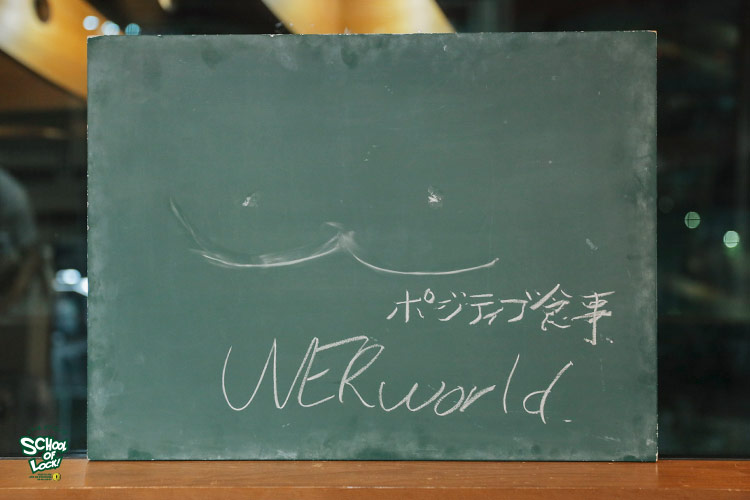 ポジティブ食事
UVERworld
SCHOOL
OF
LOCK!